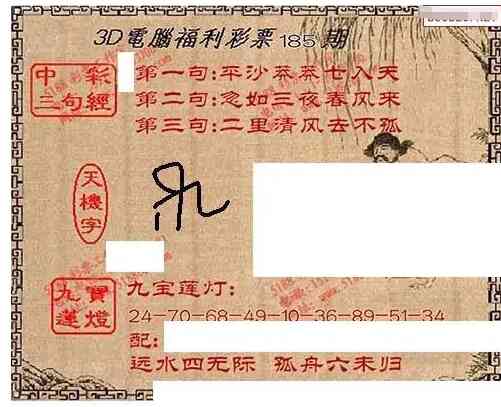 3D電腦福利彩票185期
中彩
三句經
第一句:平沙莽莽七入天
第二句:忽如三夜春风来
第三句:二里清风去不孤
天機字
九寶
蓮燈
九宝莲灯:
24-70-68-49-10-36-89-51-34
配:
远水四无际 孤舟六未归